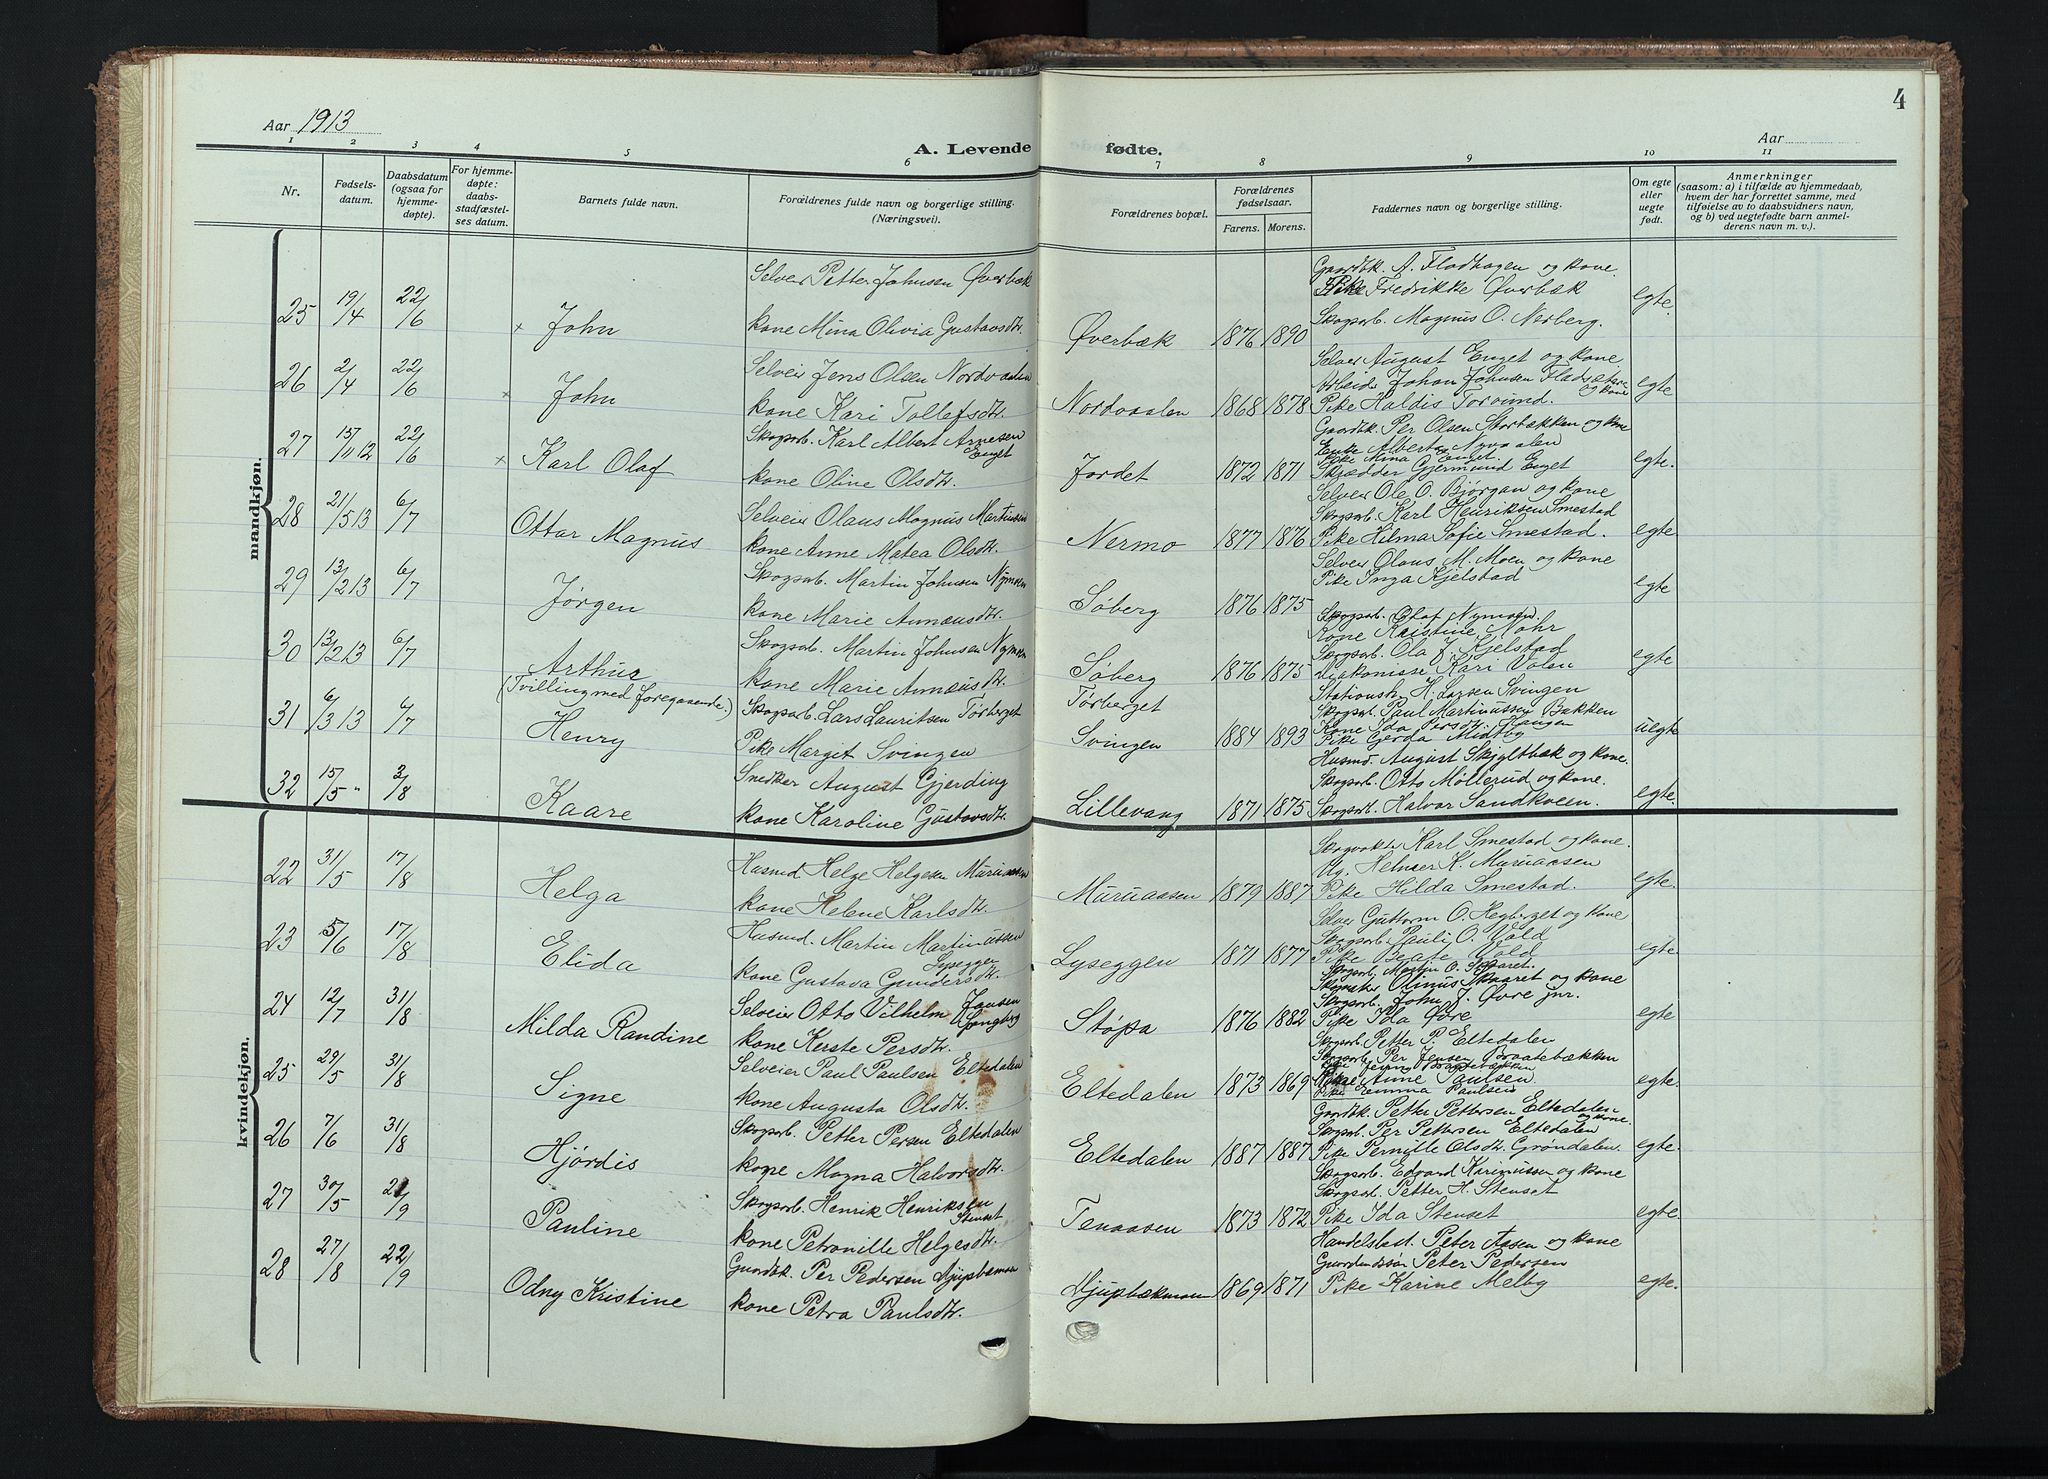 4
Aar 1913
Aar
A. Levende fødte.
1 2 3 4 5 6 7 8 9 10 11
Nr.
Fødsels-
datum.
Daabsdatum
(ogsaa for
hjemme-
døpte).
For hjemme-
døpte:
daabs-
stadfæstel-
ses datum.
Barnets fulde navn.
Forældrenes fulde navn og borgerlige stilling.
(Næringsvei).
Forældrenes bopæl.
Forældrenes
fødselsaar.
Farens. Morens.
Faddernes navn og borgerlige stilling.
Om egte
eller
uegte
født.
Anmerkninger
(saasom: a) i tilfælde av hjemmedaab,
hvem der har forrettet samme, med
tilføielse av to daabsvidners navn,
og b) ved uegtefødte barn anmel-
derens navn m. v.).
mandkjøn.
25 19/4 22/6 x John
Selveier Petter Johnsen Øverbæk
kone Mina Olivia Gustavsdtr.
Øverbæk 1876 1890
Gaardbk. A. Flodhagen og kone.
Pike Fredrikke Øverbæk
Skogsarb. Magnus O. Nerberg.
egte.
26 2/4 22/6 x John
Selveier Jens Olsen Nordvaalen
kone Kari Tollefsdtr.
Nordvaalen 1868 1878
Selveier August Enget og kone
Arbeider Johan Johnsen
og kone
Pike Haldis Torvund.
egte
27 15/11 12 22/6 x Karl Olaf
Skogsarb. Karl Albert Arnesen
Enget
kone Oline Olsdtr.
Jordet 1872 1871
Gaardbk. Per Olsen Storbækken og kone
Enke Alberte Nyvaalen
Pike Mina Enget.
Skrædder Gjermund Enget
egte.
28 21/5 13 6/7 Ottar Magnus
Selveier Olaus Magnus Martinsen
kone Anne Matea Olsdtr.
Nermo 1877 1876
Selveier Ole O. Bjørgan og kone
Skogsarb. Karl Henriksen Smestad
Pike Hilma Sofie Smestad.
egte
29 13/2 13 6/7 Jørgen
Skogsarb. Martin Johnsen Nymoen
kone Marie Annæusdtr.
Søberg 1876 1875
Selveier Olaus M. Moen og kone
Pike Inga Kjelstad
Skogsarb. Olaf Nymoen.
egte
30 13/2 13 6/7 Arthur
(Tvilling med foregaaende.)
Skogsarb. Martin Johnsen Nymoen
kone Marie Annæusdtr.
Søberg 1876 1875
Kone Kristine Mohr
Skogsarb. Ola J. Kjelstad
Diakonisse Kari Volen
egte
31 6/3 13 6/7 Henry
Skogsarb. Lars Lauritsen Tørberget
Pike Margit Svingen
Tørberget
Svingen 1884 1893
Stationsb. H. Larsen Svingen
Skogsarb. Paul Martinussen Bækken
Kone Ida Persdtr. Haugen
Pike Gerda Midtby
uegte
32 15/5 " 3/8 Kaare
Snedker August Gjerding
kone Karoline Gustavsdtr.
Lillevang 1871 1875
Husmd. August Skjyltbæk og kone.
Skogsarb. Otto Møllerud og kone.
Skogsarb. Halvor Sandkveen.
egte.
kvindekjøn.
22 31/5 17/8 Helga
Husmd Helge Helgesen Muruaasen
kone Helene Karlsdtr.
Muruaasen 1879 1887
Skogvokter Karl Smestad og kone.
Ug. Helmer H. Muruaasen
Pike Hilda Smestad.
egte.
23 5/6 17/8 Elida
Husmd. Martin Martinussen
Lyseggen
kone Gustava Gundersdtr.
Lyseggen 1871 1877
Selveier Guttorm O. Hegberget og kone
Skogsarb. Pauli O. Vold
Pike Beate Vold
Skogsarb. Martin O. Skaaret.
egte.
24 12/7 31/8 Milda Randine
Selveier Otto Vilhelm Jansen
Ljungberg
kone Kerste Persdtr.
Støpa 1876 1882
Olinus Skaaret og kone
Skogsarb. John J. Øvre jnr.
Pike Ida Øvre
egte
25 29/5 31/8 Signe
Selveier Paul Paulsen Eltedalen
kone Augusta Olsdtr.
Eltedalen 1873 1869
Skogsarb. Petter P. Eltedalen
Skogsarb. Per Jensen Braatebækken
Pike Jenny Braatebækken
Pike Anne Paulsen
Pike Emma Paulsen
egte
26 7/6 31/8 Hjørdis
Skogsarb. Petter Persen Eltedalen
kone Magna Halvorsdtr.
Eltedalen 1887 1887
Gaardbk. Petter Pettersen Eltedalen
og kone.
Skogsarb. Per Pettersen Eltedalen
Pike Pernille Olsdtr. Grøndalen.
egte.
27 30/5 21/9 Pauline
Skogsarb. Henrik Henriksen
Stenset
kone Petronille Helgesdtr.
Tenaasen 1873 1872
Skogsarb. Edvard Karinussen og kone
Skogsarb. Petter H. Stenset
Pike Ida Stenset
egte.
28 27/8 22/9 Odny Kristine
Gaardbk. Per Pedersen Djupbækmoen
kone Petra Paulsdtr.
Djupbækmoen 1869 1871
Handelsbest. Peter Aasen og kone
Gaardmdssøn Peter Pedersen
Pike Karine Melby
egte.